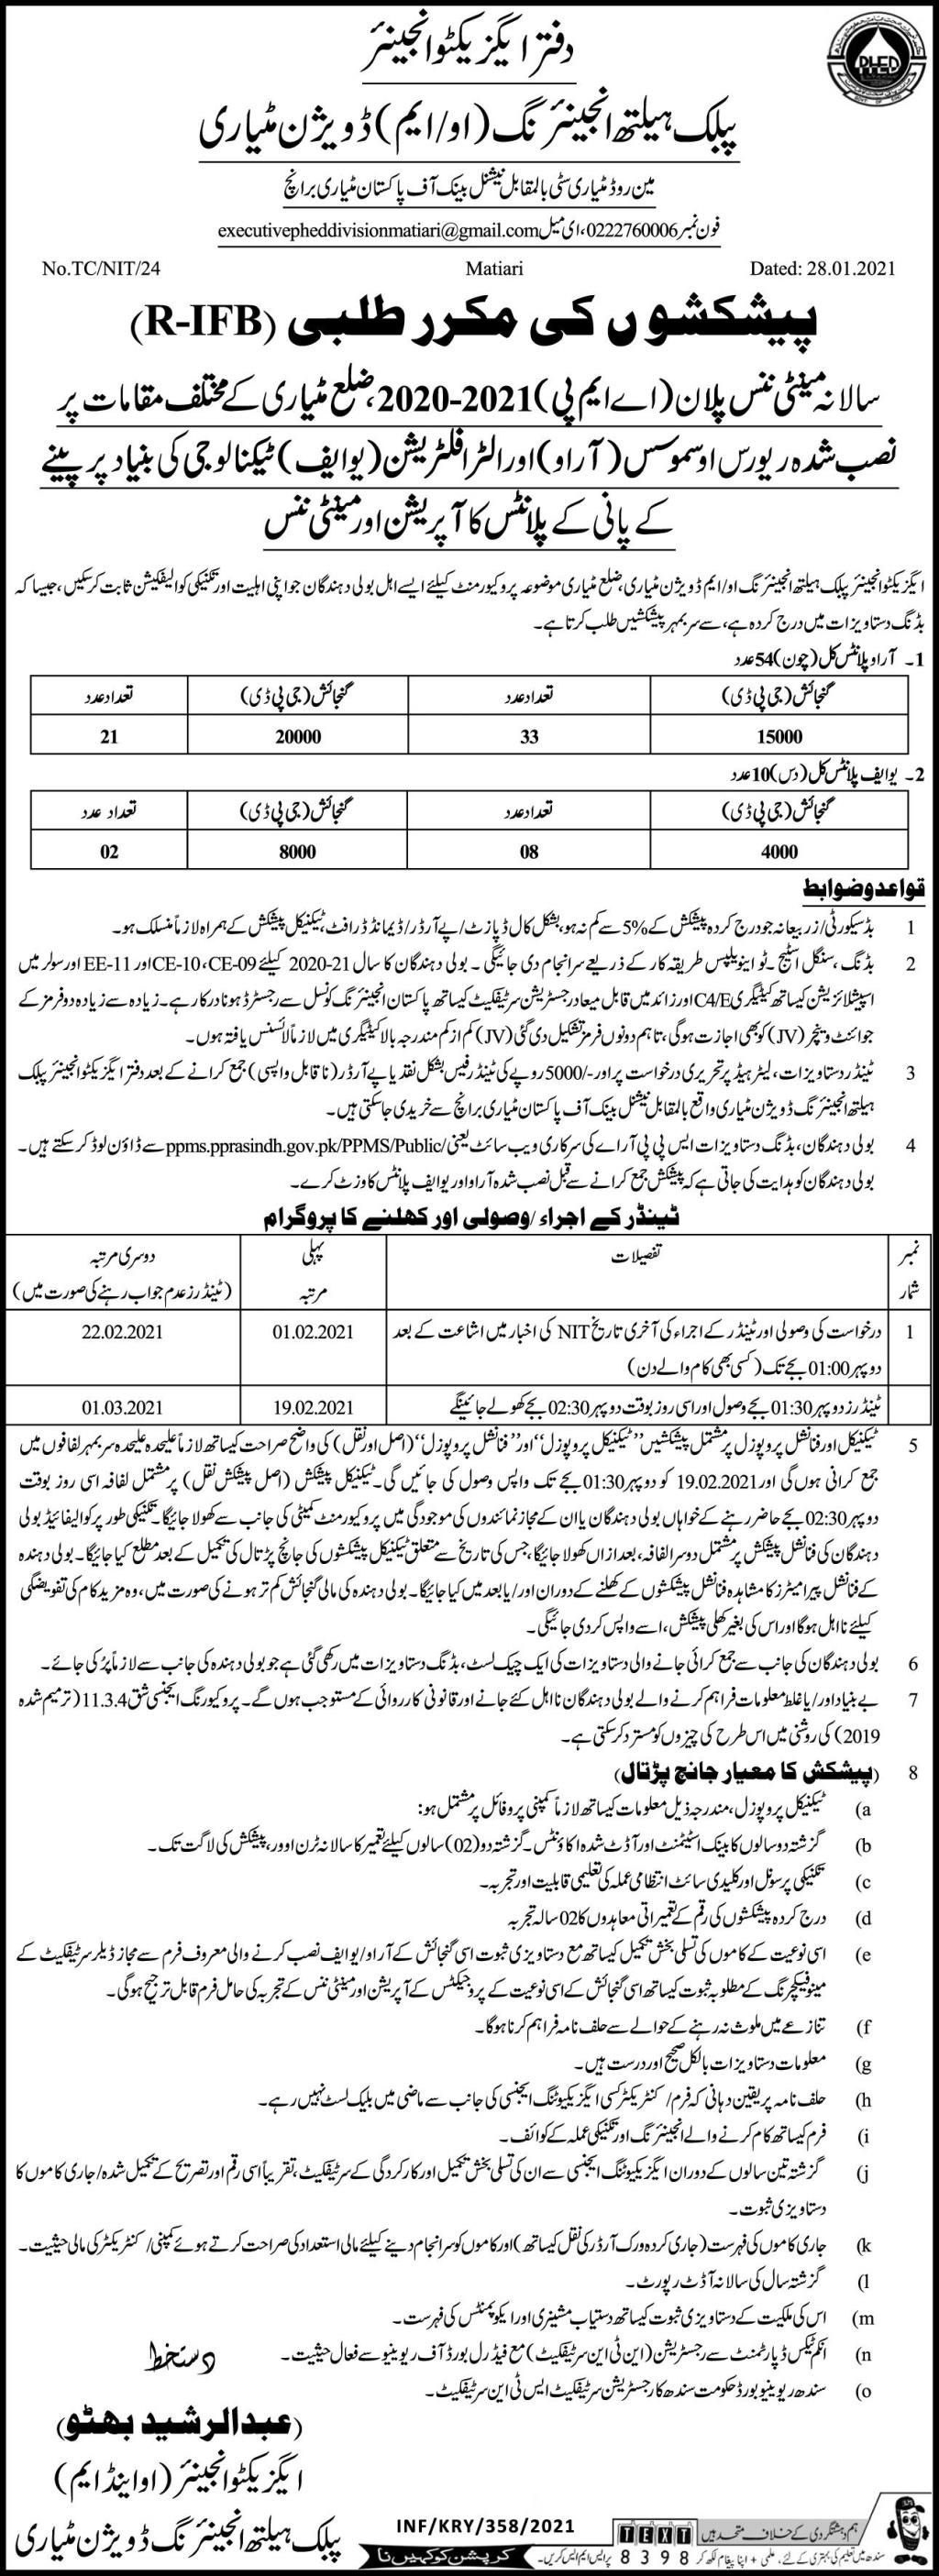 دفتر ایگزیکٹو انجینئر
پبلک ہیلتھ انجینئرنگ (او/ایم) ڈویژن مٹیاری
مین روڈ مٹیاری سٹی بالمقابل نیشنل بینک آف پاکستان مٹیاری برانچ
فون نمبر 0222760006، ای میل executivepheddivisionmatiari@gmail.com
No.TC/NIT/24 Matiari Dated: 28.01.2021
پیشکشوں کی مکرر طلبی (R-IFB)
سالانہ مینٹی ننس پلان (اے ایم پی) 2020-2021، ضلع مٹیاری کے مختلف مقامات پر
نصب شدہ ریورس اوسموسس (آر او) اور الٹرا فلٹریشن (یو ایف) ٹیکنالوجی کی بنیاد پر پینے
کے پانی کے پلانٹس کا آپریشن اور مینٹی ننس
ایگزیکٹو انجینئر پبلک ہیلتھ انجینئرنگ او/ایم ڈویژن مٹیاری، ضلع مٹیاری موضوعہ پروکیورمنٹ کیلئے ایسے اہل بولی دہندگان جو اپنی اہلیت اور تکنیکی کوالیفکیشن ثابت کرسکیں، جیسا کہ
بڈنگ دستاویزات میں درج کردہ ہے، سے سربمہر پیشکشیں طلب کرتا ہے۔
1۔ آر او پلانٹس کل (چون) 54 عدد
گنجائش (جی پی ڈی) تعداد عدد گنجائش (جی پی ڈی) تعداد عدد
15000 33 20000 21
2۔ یو ایف پلانٹس کل (دس) 10 عدد
گنجائش (جی پی ڈی) تعداد عدد گنجائش (جی پی ڈی) تعداد عدد
4000 08 8000 02
قواعد و ضوابط
1 بڈ سیکورٹی/زر بیعانہ جو درج کردہ پیشکش کے 5% سے کم نہ ہو، بشکل کال ڈپازٹ/پے آرڈر/ڈیمانڈ ڈرافٹ، ٹیکنیکل پیشکش کے ہمراہ لازماً منسلک ہو۔
2 بڈنگ، سنگل اسٹیج۔ ٹو اینویلپس طریقہ کار کے ذریعے سرانجام دی جائیگی۔ بولی دہندگان کا سال 2020-21 کیلئے CE-10، CE-09 اور EE-11 اور سولر میں
اسپیشلائزیشن کیساتھ کیٹیگری C4/E اور زائد میں قابل میعاد رجسٹریشن سرٹیفکیٹ کیساتھ پاکستان انجینئرنگ کونسل سے رجسٹرڈ ہونا درکار ہے۔ زیادہ سے زیادہ دو فرمز کے
جوائنٹ وینچر (JV) کو بھی اجازت ہوگی، تاہم دونوں فرمز تشکیل دی گئی (JV) کم از کم مندرجہ بالا کیٹیگری میں لازماً لائسنس یافتہ ہوں۔
3 ٹینڈر دستاویزات، لیٹر ہیڈ پر تحریری درخواست پر اور -/5000 روپے کی ٹینڈر فیس بشکل نقد یا پے آرڈر (ناقابل واپسی) جمع کرانے کے بعد دفتر ایگزیکٹو انجینئر پبلک
ہیلتھ انجینئرنگ ڈویژن مٹیاری واقع بالمقابل نیشنل بینک آف پاکستان مٹیاری برانچ سے خریدی جاسکتی ہیں۔
4 بولی دہندگان، بڈنگ دستاویزات ایس پی پی آر اے کی سرکاری ویب سائٹ یعنی ppms.pprasindh.gov.pk/PPMS/Public/ سے ڈاؤن لوڈ کرسکتے ہیں۔
بولی دہندگان کو ہدایت کی جاتی ہے کہ پیشکش جمع کرانے سے قبل نصب شدہ آر او اور یو ایف پلانٹس کا وزٹ کرے۔
ٹینڈر کے اجراء/وصولی اور کھلنے کا پروگرام
نمبر شمار تفصیلات پہلی مرتبہ دوسری مرتبہ
(ٹینڈرز عدم جواب رہنے کی صورت میں)
1 درخواست کی وصولی اور ٹینڈر کے اجراء کی آخری تاریخ NIT کی اخبار میں اشاعت کے بعد 01.02.2021 22.02.2021
دوپہر 01:00 بجے تک (کسی بھی کام والے دن)
ٹینڈرز دوپہر 01:30 بجے وصول اور اسی روز بوقت دوپہر 02:30 بجے کھولے جائینگے 19.02.2021 01.03.2021
5 ٹیکنیکل اور فنانشل پروپوزل پر مشتمل پیشکشیں ”ٹیکنیکل پروپوزل“ اور ”فنانشل پروپوزل“ (اصل اور نقل) کی واضح صراحت کیساتھ لازماً علیحدہ علیحدہ سربمہر لفافوں میں
جمع کرانی ہوں گی اور 19.02.2021 کو دوپہر 01:30 بجے تک واپس وصول کی جائیں گی۔ ٹیکنیکل پیشکش (اصل پیشکش نقل) پر مشتمل لفافہ اسی روز بوقت
دوپہر 02:30 بجے حاضر رہنے کے خواہاں بولی دہندگان یا ان کے مجاز نمائندوں کی موجودگی میں پروکیورمنٹ کمیٹی کی جانب سے کھولا جائیگا۔ تکنیکی طور پر کوالیفائیڈ بولی
دہندگان کی فنانشل پیشکش پر مشتمل دوسرا لفافہ، بعد ازاں کھولا جائیگا، جس کی تاریخ سے متعلق ٹیکنیکل پیشکشوں کی جانچ پڑتال کی تکمیل کے بعد مطلع کیا جائیگا۔ بولی دہندہ
کے فنانشل پیرامیٹرز کا مشاہدہ فنانشل پیشکشوں کے کھلنے کے دوران اور/یا بعد میں کیا جائیگا۔ بولی دہندہ کی مالی گنجائش کم تر ہونے کی صورت میں، وہ مزید کام کی تفویضگی
کیلئے نااہل ہوگا اور اس کی بغیر کھلی پیشکش، اسے واپس کردی جائیگی۔
6 بولی دہندگان کی جانب سے جمع کرائی جانے والی دستاویزات کی ایک چیک لسٹ، بڈنگ دستاویزات میں رکھی گئی ہے جو بولی دہندہ کی جانب سے لازماً پر کی جائے۔
7 بے بنیاد اور/یا غلط معلومات فراہم کرنے والے بولی دہندگان نااہل کئے جانے اور قانونی کارروائی کے مستوجب ہوں گے۔ پروکیورنگ ایجنسی شق 11.3.4 (ترمیم شدہ
2019) کی روشنی میں اس طرح کی چیزوں کو مسترد کرسکتی ہے۔
8 (پیشکش کا معیار جانچ پڑتال)
a) ٹیکنیکل پروپوزل، مندرجہ ذیل معلومات کیساتھ لازماً کمپنی پروفائل پر مشتمل ہو:
b) گزشتہ دو سالوں کا بینک اسٹیٹمنٹ اور آڈٹ شدہ اکاؤنٹس۔ گزشتہ دو (02) سالوں کیلئے تعمیر کا سالانہ ٹرن اوور، پیشکش کی لاگت تک۔
c) تکنیکی پرسونل اور کلیدی سائٹ انتظامی عملہ کی تعلیمی قابلیت اور تجربہ۔
d) درج کردہ پیشکشوں کی رقم کے تعمیراتی معاہدوں کا 02 سالہ تجربہ
e) اسی نوعیت کے کاموں کی تسلی بخش تکمیل کیساتھ مع دستاویزی ثبوت اسی گنجائش کے آر او/یو ایف نصب کرنے والی معروف فرم سے مجاز ڈیلر سرٹیفکیٹ کے
مینوفیکچرنگ کے مطلوبہ ثبوت کیساتھ اسی گنجائش کے اسی نوعیت کے پروجیکٹس کے آپریشن اور مینٹی ننس کے تجربہ کی حامل فرم قابل ترجیح ہوگی۔
f) تنازعے میں ملوث نہ رہنے کے حوالے سے حلف نامہ فراہم کرنا ہوگا۔
g) معلومات دستاویزات بالکل صحیح اور درست ہیں۔
h) حلف نامہ پر یقین دہانی کہ فرم/کنٹریکٹر کسی ایگزیکیوٹنگ ایجنسی کی جانب سے ماضی میں بلیک لسٹ نہیں رہے۔
i) فرم کیساتھ کام کرنے والے انجینئرنگ اور تکنیکی عملہ کے کوائف۔
j) گزشتہ تین سالوں کے دوران ایگزیکیوٹنگ ایجنسی سے ان کی تسلی بخش تکمیل اور کارکردگی کے سرٹیفکیٹ، تقریباً اسی رقم اور تصریح کے تکمیل شدہ/جاری کاموں کا
دستاویزی ثبوت۔
k) جاری کاموں کی فہرست (جاری کردہ ورک آرڈر کی نقل کیساتھ) اور کاموں کو سرانجام دینے کیلئے مالی استعداد کی صراحت کرتے ہوئے کمپنی/کنٹریکٹر کی مالی حیثیت۔
l) گزشتہ سال کی سالانہ آڈٹ رپورٹ۔
m) اس کی ملکیت کے دستاویزی ثبوت کیساتھ دستیاب مشینری اور ایکوپمنٹس کی فہرست۔
n) انکم ٹیکس ڈپارٹمنٹ سے رجسٹریشن (این ٹی این سرٹیفکیٹ) مع فیڈرل بورڈ آف ریوینیو سے فعال حیثیت۔
o) سندھ ریوینیو بورڈ حکومت سندھ کا رجسٹریشن سرٹیفکیٹ ایس ٹی این سرٹیفکیٹ۔
دستخط
(عبدالرشید بھٹو)
ایگزیکٹو انجینئر (او اینڈ ایم)
پبلک ہیلتھ انجینئرنگ ڈویژن مٹیاری
INF/KRY/358/2021
کرپشن کو کہیں نا
ہم دہشتگردی کے خلاف متحد ہیں TEXT
سندھ میں تعلیم کی بہتری کے لئے، علمی + اپنا پیغام لکھ کر 8398 پر ایس ایم ایس کریں۔
PHED